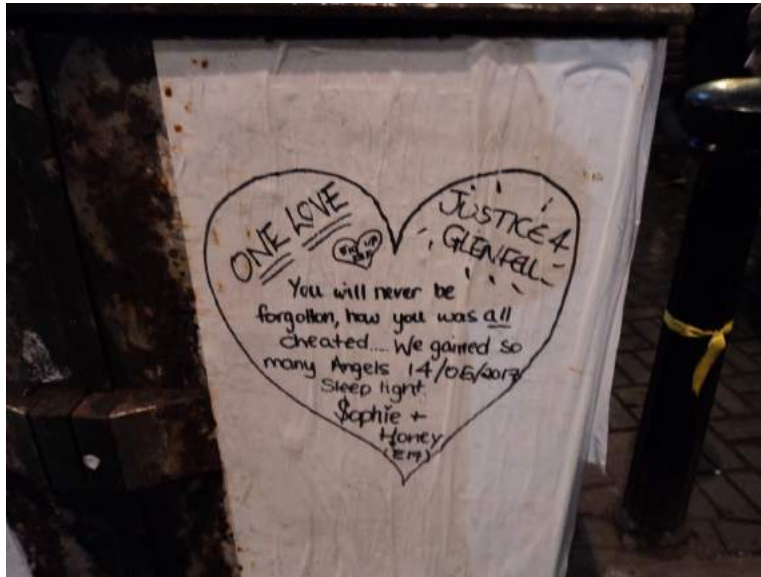 ONE LOVE
JUSTICE 4
GLENFELL
You will never be
forgotton, how you was all
cheated.... We gained so
many Angels 14/06/2017
Sleep tight
Sophie +
Honey
(E17)